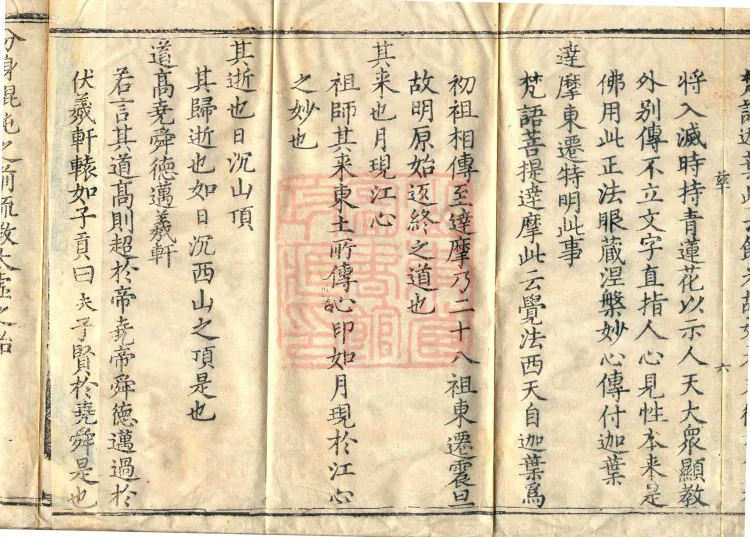 將入滅時持青蓮花以示人天大衆顯教
外別傳不立文字直指人心見性本来是
佛用此正法眼蔵涅槃妙心傳付迦葉
達摩東遷特明此事
梵語菩提達摩此云覺法西天自迦葉爲
初祖相傳至達摩乃二十八祖東遷震旦
故明原始返終之道也
其来也月現江心
祖師其来東土所傳心印如月現於江心
之妙也
其逝也日沉山頂
其歸逝也如日沉西山之項是也
道髙堯舜德邁羲軒
若言其道髙則超於帝堯帝舜德邁過於
伏羲軒轅如子貢曰夫子賢於堯舜是也
六